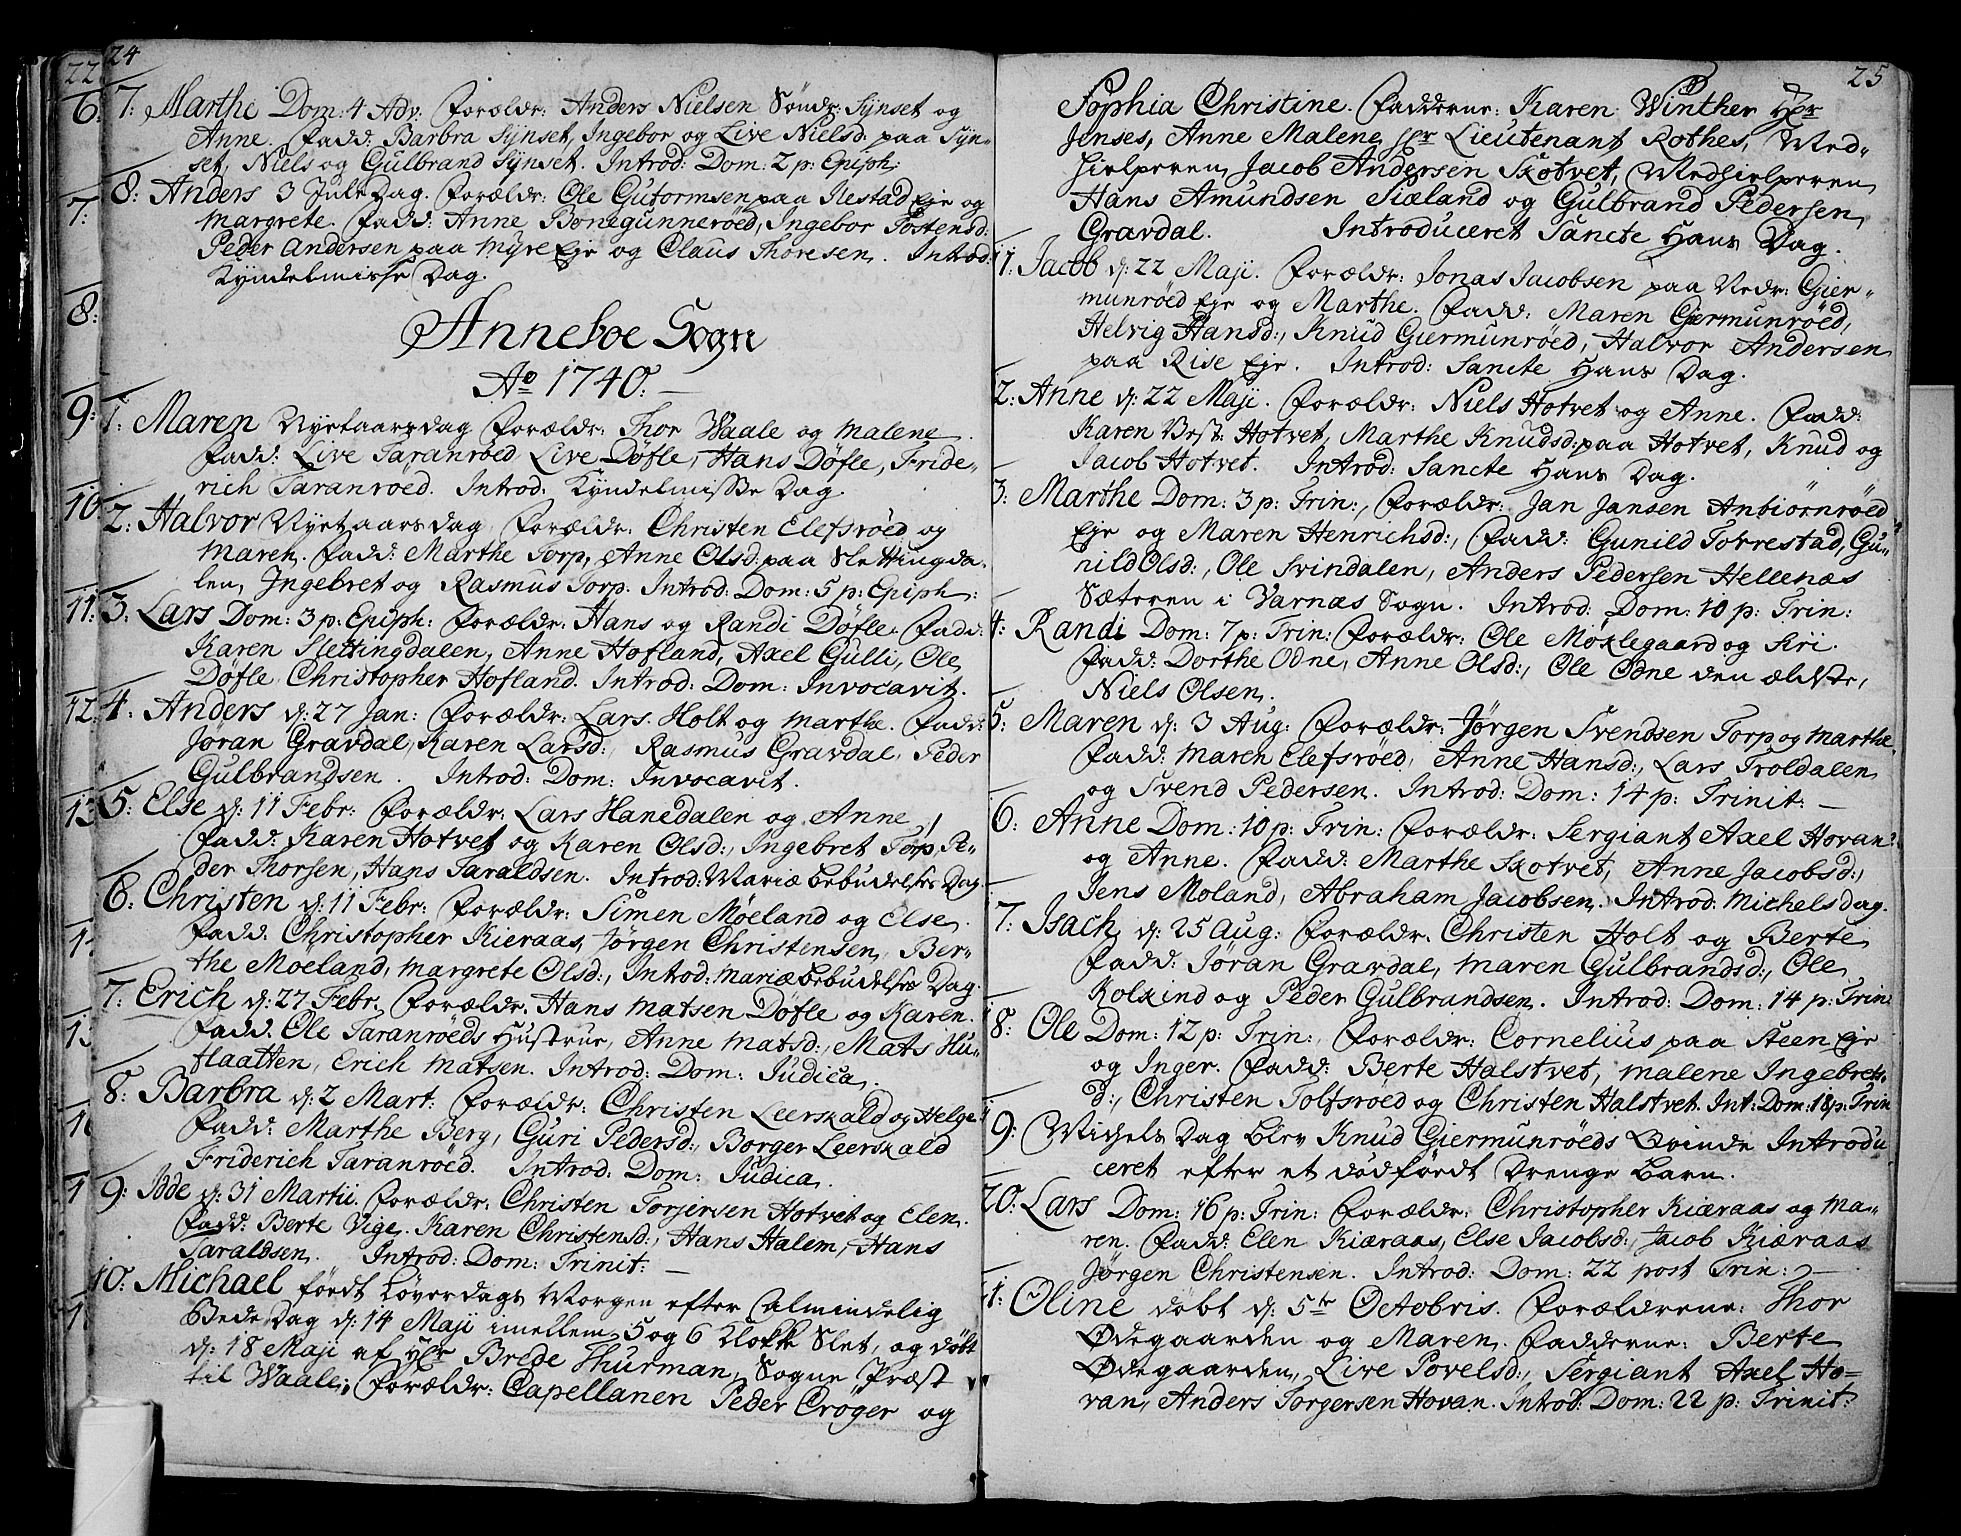 24
22
6:
7:
8:
9:
10
11:
12:
13
7: Marthe Dom: 4 Adv. Forældr: Anders Nielsen Søndr: Sÿnset og
Anne. Fadd: Barbra Sÿnset, Ingebor og Live Nielsd: paa Sÿn-
set, Niels og Gulbrand Sÿnset. Introd: Dom: 2 p: Epiph:
8: Anders 3 Jule Dag. Forældr: Ole Gutormsen paa Ilestad Eje og
Margrete. Fadd: Anne Bonegunnerøed, Ingebor Tostensd:
Peder Andersen paa Mÿre Eje og Claus Thoresen. Introd:
Kyndelmisse Dag.
Anneboe Sogn
Ao 1740.
1: Maren Nyetaarsdag Forældr: Thor Waale og Malene.
Fadd: Live Taranrøed, Live Døfle, Hans Døfle, Fride-
rich Taranrøed. Introd: Kyndelmisse Dag.
2: Halvor Nyetaarsdag, Forældr: Christen Elefsrøed og
Maren. Fadd: Marthe Torp, Anne Olsd: paa Slettingda-
len, Ingebret og Rasmus Torp. Introd: Dom: 5 p: Epiph:
3: Lars Dom: 3 p: Epiph: Forældr: Hans og Randi Døfle. Fadd:
Karen Slettingdalen, Anne Hofland, Axel Gulli, Ole
Døfle, Christopher Hofland. Introd: Dom: Invocavit.
4. Anders d: 27 Jan: Forældr: Lars Holt og Marthe. Fadd:
Jøran Gravdal, Karen Larsd:, Rasmus Gravdal, Peder
Gulbrandsen. Introd: Dom: Invocavit.
5: Else d: 11 Febr: Forældr: Lars Hanedalen og Anne,
Fadd: Karen Hotvet og Karen Olsd:, Ingebret Torp, Pe-
der Thorsen, Hans Taraldsen. Introd: Mariæ Bebudelses Dag.
6: Christen d: 11 Febr: Forældr: Simen Møeland og Else.
Fadd: Christopher Kieraas, Jørgen Christensen, Ber-
the Moeland, Margrete Olsd:, Introd: Mariæ Bebudelses Dag.
7: Erich d: 27 Febr. Forældr: Hans Matsen Døfle og Karen.
Fadd: Ole Taranrøeds Hustrue, Anne Matsd:, Mats Hu-
flaatten, Erich Matsen. Introd: Dom: Judica.
8: Barbra d: 2 Mart: Forældr: Christen Leerskald og Helge.
Fadd: Marthe Berg, Guri Pedersd:, Borger Leerskald
Friderich Taranrøed. Introd: Dom: Judica.
9: Idde d: 31 Martii. Forældr: Christen Torjersen Hotvet og Elen.
Fadd: Berte Vige. Karen Christensd:, Hans Halem, Hans
Taraldsen. Introd: Dom: Trinit:
10: Michael født Løverdags Morgen efter Almindelig
Bede Dag d: 14 Maji imellem 5 og 6 Klokke Slet, og døbt
d: 18 Maji af Hr Brede Thurman, Sogne Præst
til Waale; Forældr: Capellanen Peder Crøger og
25
Sophia Christine. Fadderne: Karen Winther Hr
Jenses, Anne Malene Hr Lieutenant Rothes, Med-
hielperen, Jacob Andersen Skotvet, Medhielperen
Hans Amundsen Siæland og Gulbrand Pedersen
Gravdal. Introduceret Sancte Hans Dag.
11: Jacob d: 22 Maji. Forældr: Jonas Jacobsen paa Nedr: Gier-
munrøed Eje og Marthe. Fadd: Maren Giermunrøed,
Helvig Hansd:, Knud Giermunrøed, Halvor Andersen
paa Rise Eje. Introd: Sancte Hans Dag.
12: Anne d: 22 Maji. Forældr: Niels Hotvet og Anne. Fadd:
Karen Vest: Hotvet, Marthe Knudsd: paa Hotvet, Knud og
Jacob Hotvet. Introd: Sancte Hans Dag.
3: Marthe Dom: 3 p: Trin:, Forældr: Jan Jansen Anbiørnrøed
Eje og Maren Henrichsd:, Fadd: Gunild Torrestad, Gu-
nild Olsd:, Ole Svindalen, Anders Pedersen Hellenæs
Sæteren i Varnæs Sogn. Introd: Dom: 10 p: Trin:
4: Randi Dom: 7 p: Trin: Forældr: Ole Møklegaard og Siri.
Fadd: Dorthe Odne, Anne Olsd:, Ole Odne den ældste,
Niels Olsen.
5: Maren d: 3 Aug: Forældr: Jørgen Svendsen Torp og Marthe.
Fadd: Maren Elefsrøed, Anne Hansd:, Lars Troldalen
og Svend Pedersen. Introd: Dom: 14 p: Trinit:
6: Anne Dom: 10 p: Trin: Forældr: Sergiant Axel Hovan
og Anne. Fadd: Marthe Skotvet, Anne Jacobsd:,
Jens Moland, Abraham Jacobsen. Introd: Michelsdag.
7: Isach d: 25 Aug: Forældr: Christen Holt og Berte
Fadd: Jøran Gravdal, Maren Gulbrandsd:, Ole
Kolkind og Peder Gulbrandsen. Introd: Dom: 14 p: Trin:
8: Ole Dom: 12 p: Trin:, Forældr: Cornelius paa Steen Eje
og Inger. Fadd: Berte Halstvet, Malene Ingebrets-
d:, Christen Tolfsrøed og Christen Halstvet. Int: Dom: 18 p: Trin
9: Michels Dag blev Knud Giermunrøeds Qvinde Introdu
ceret efter et dødfødt Drenge Barn.
20: Lars Dom: 16 p: Trin: Forældr: Christopher Kiæraas og Ma-
ren. Fadd: Elen Kiæraas, Else Jacobsd:, Jacob Kiæraas
Jørgen Christensen. Introd: Dom: 22 post Trin:
1: Oline døbt d: 5te Octobris. Forældrene: Thor
Ødegaarden og Maren. Fadderne: Berte
Ødegaarden, Live Povelsd:, Sergiant Axel Ho-
van, Anders Torgersen Hovan. Introd: Dom: 22 p: Trinit: